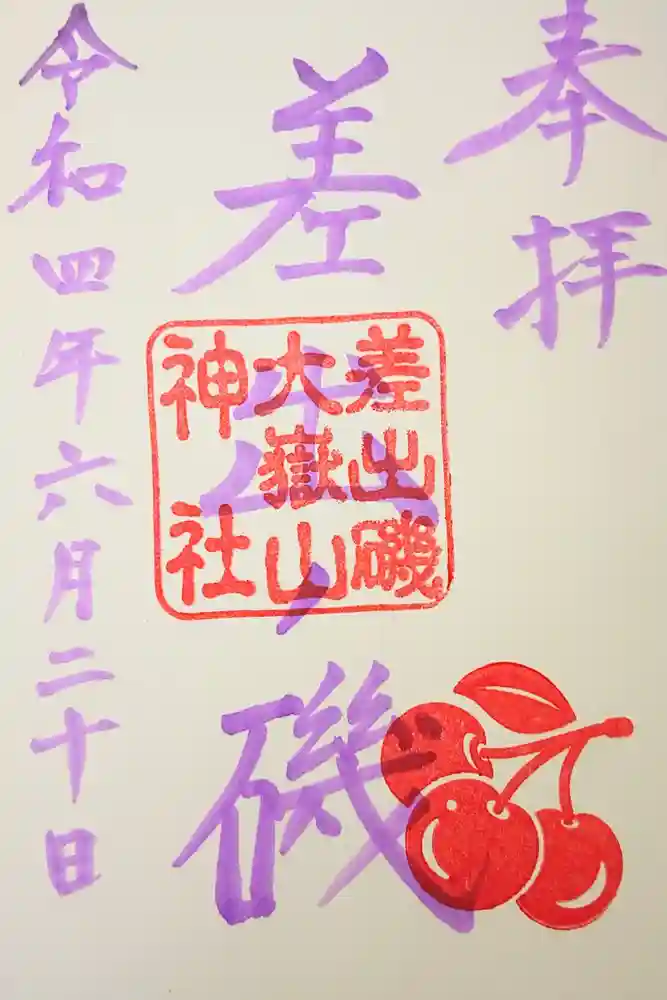 奉拝
差出ノ磯
差出磯
大嶽山
神社
令和四年六月二十日